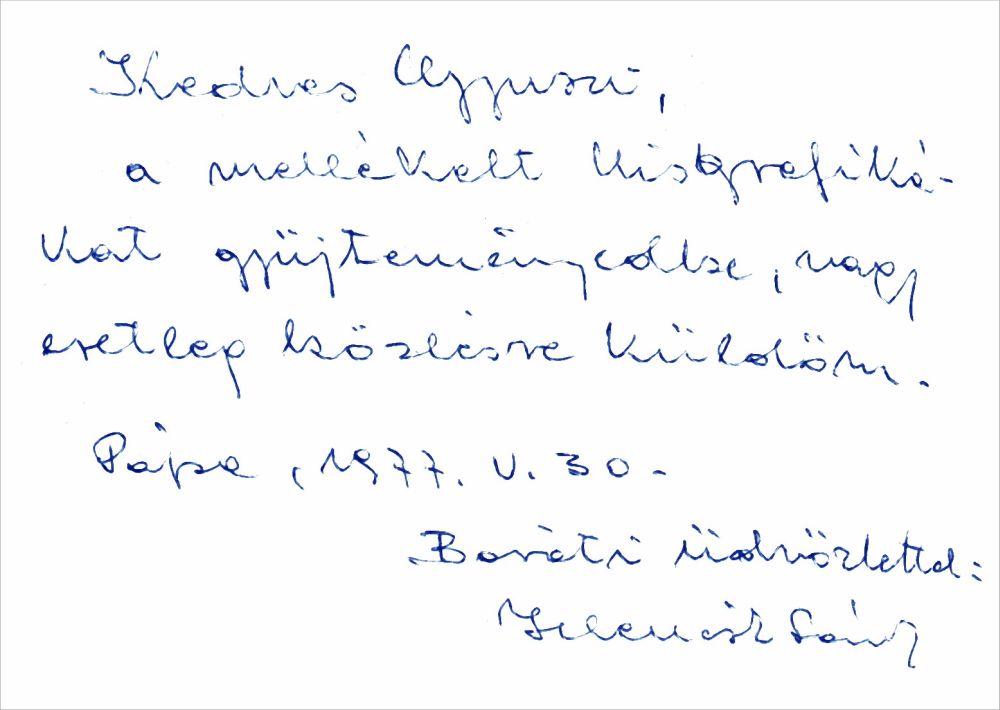 Kedves
a mellékelt kisgrafiká-
kat gyüjteményedbe, vagy
esetleg közlésre küldöm.
Pápa, 1977. V. 30-
Baráti üdvözlettel: